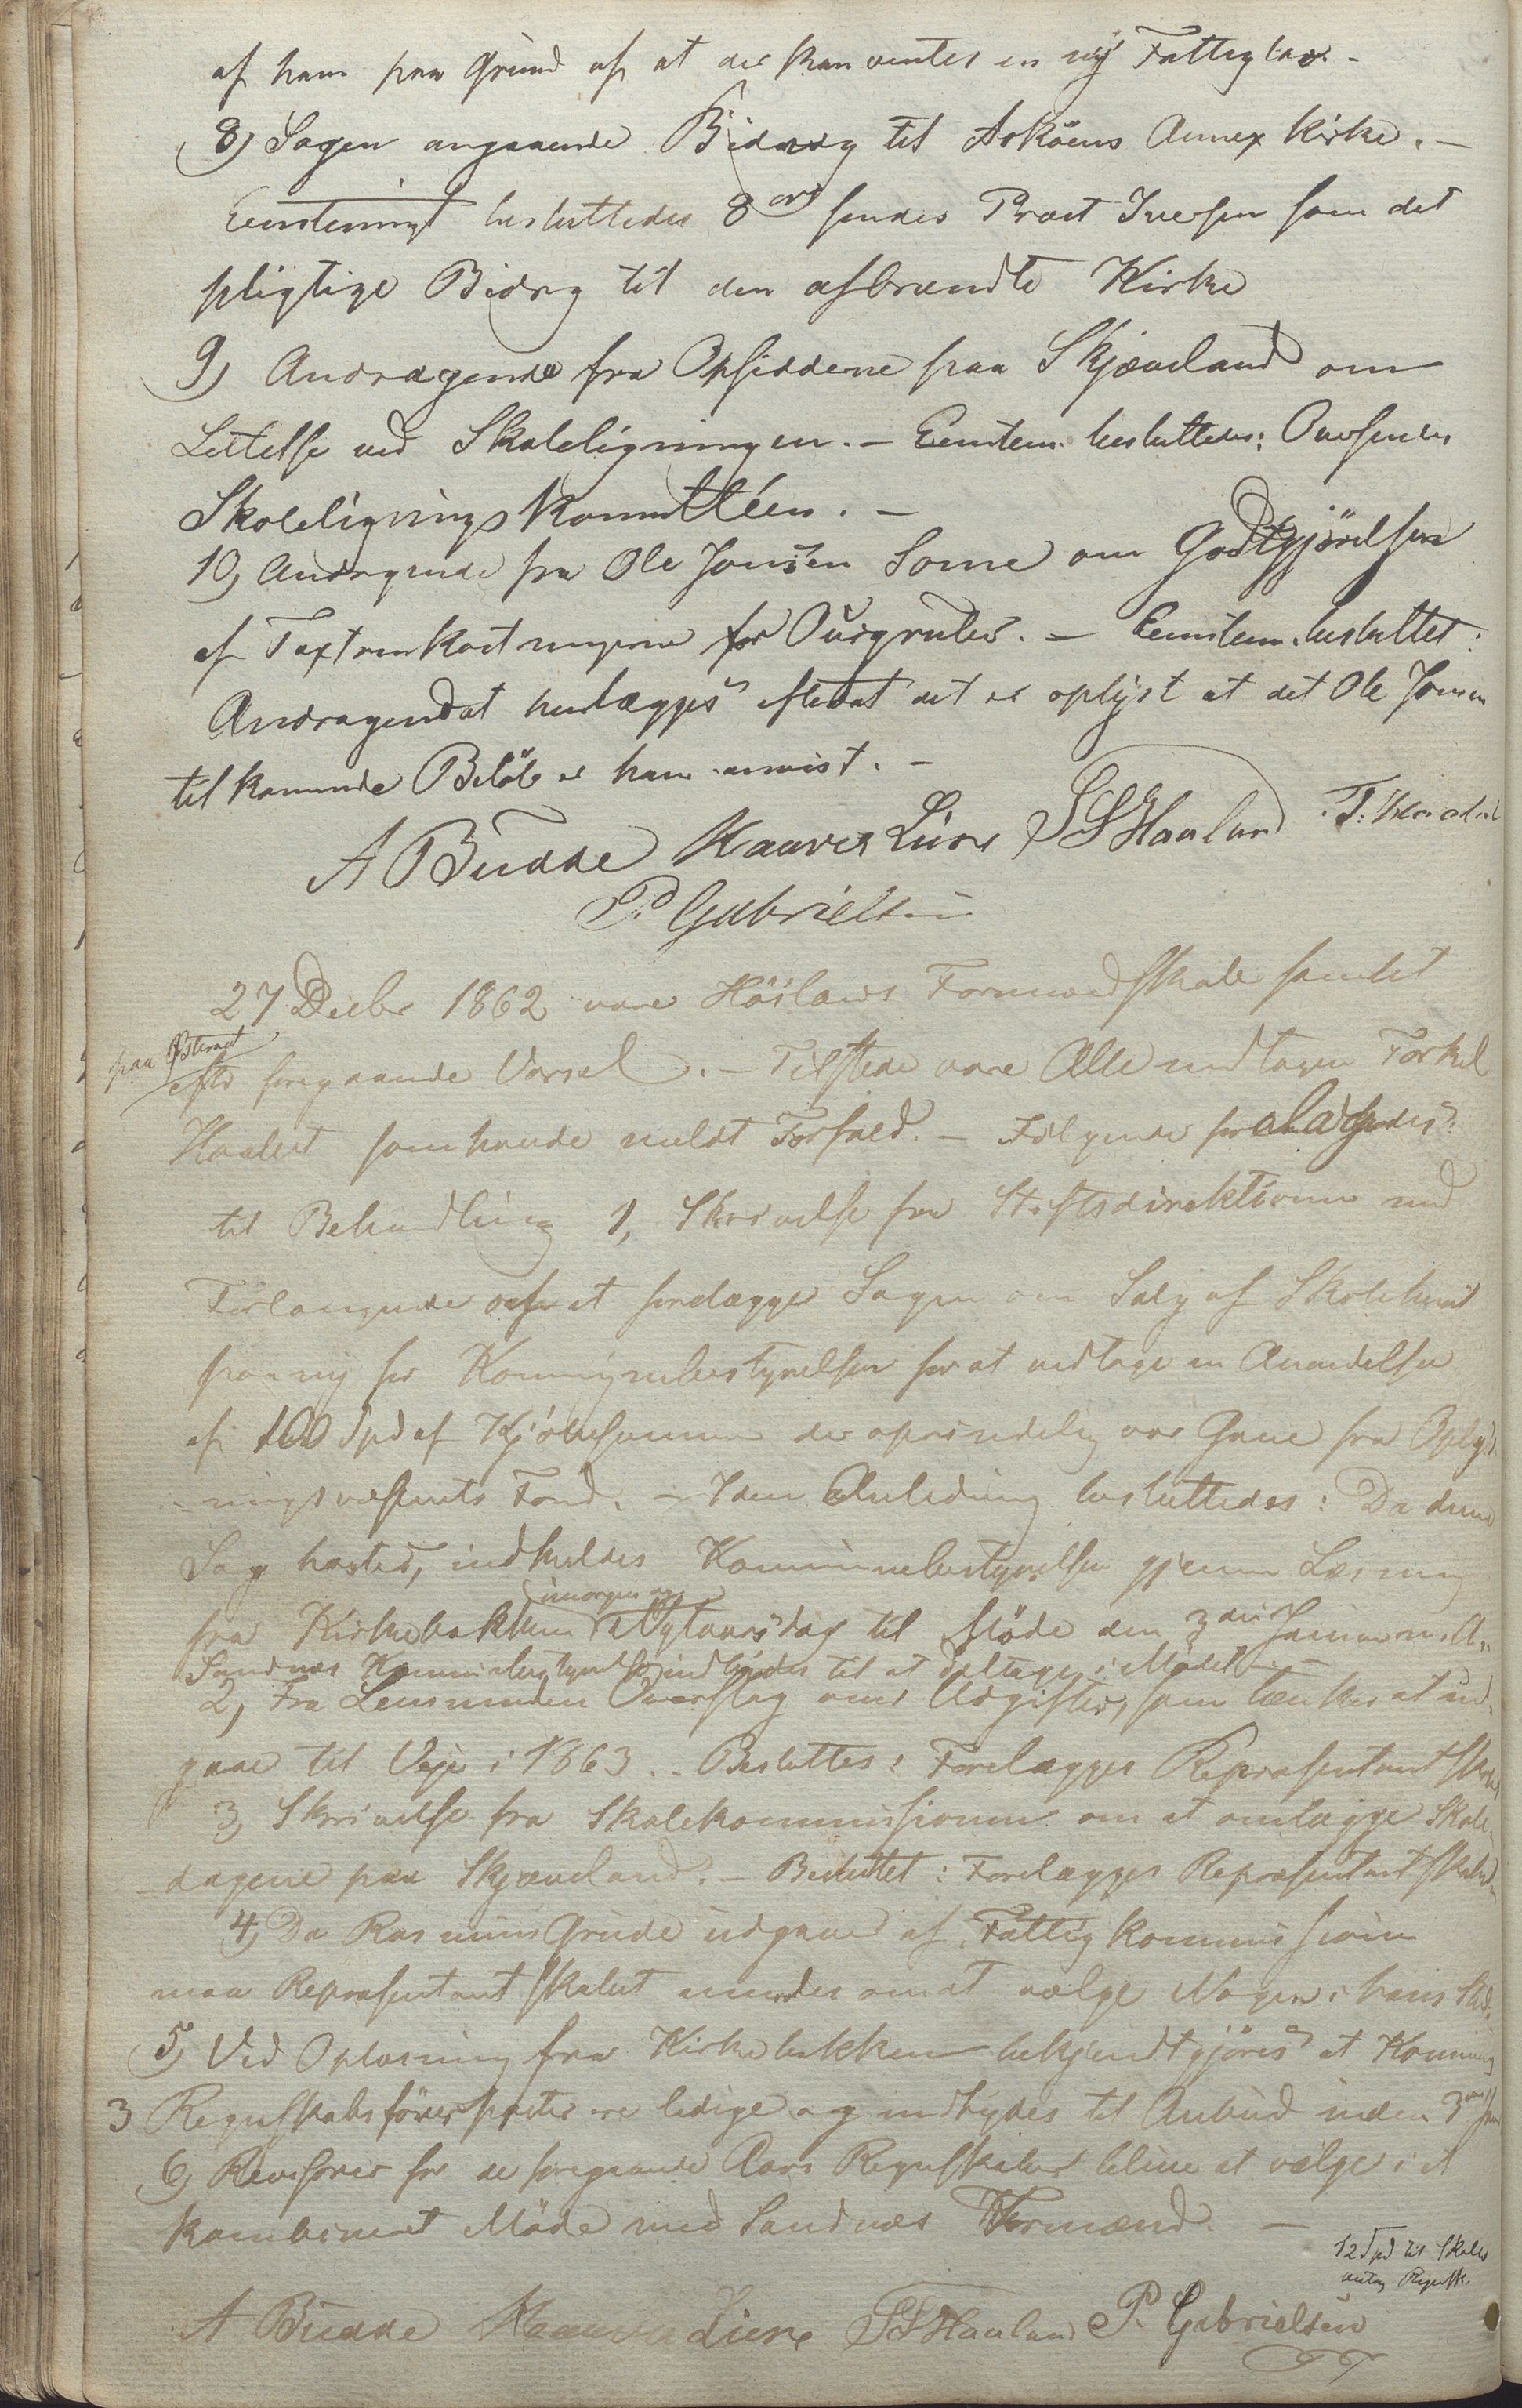 af ham paa Grund af at der kan ventes en nÿ Fattiglov. -
8, Sagen angaaende Bidrag til Askøens Annex Kirke. -
Eenstemigt besluttedes 8 ort sendes Provst Iversen som det
pligtige Bidrag til den afbrændte Kirke
9, Andragende fra Opsidderne paa Skjæveland om
Lettelse ved Skoleligningen. - Eenstem. besluttedes: Oversendes
Skolelignings Komitteen. -
10, Andragende fra Ole Jonsen Somme om Godtgjörelsen
af Taxtomkostningerne for Öurgruber. - Eenstem. besluttet:
Andragendet henlægges efterat det er oplyst at det Ole Jonsen
tilkommende Beløb er ham anvist. -
A Budde Kaaver Lura S S Haaland T.
P Gabrielsen
27 Decbr 1862 vare Höilands Formandskab samlet
paa Østeraat
efter foregaaende Varsel. - Tilstede vare Alle undtagen Torkel
som havde meldt Forfald. - Følgende foretoges
til Behandling 1, Skrivelse fra Stiftsdirektionen med
Forlangende om at forelægge Sagen om Salg af Skolehuset
paa ny for Kommunebestyrelsen for at vedtage en Anvendelse
af 100 Spd af Kjöbesummen der oprindelig var Gave fra Oplys-
ningsvæsenets Fond. - I den Anledning besluttedes: Da denne
Sag haster, indkaldes Kommunebestyrelsen gjennem Læsning
imorgen og
fra Kirkebakken Nytaarsdag til Möde den 3die Januar n. A.
Sandnes Kommunebestyrelse indbydes til at deltage i Mödet -
2, Fra Lensmanden Overslag over Udgifter, som tænkes at ud-
gaae til Veje i 1863. - Besluttes: Forelægges Repræsentantskabet
3, Skrivelse fra Skolekommissionen om at omlægge Skole-
dagene paa Skjæveland. - Besluttet: Forelægges Repræsentantskabet
4, Da Rasmus Grude udgaaer af Fattigkommissionen
maa Repræsentantskabet mindes om at vælge Nogen i hans Sted.
5, Ved Oplæsning fra Kirkebakken bekjendtgjöres at Kommunens
3 Regnskabsförerposter ere ledige og indbydes til Anbud inden 3die Jan
6, Revisorer for de foregaaende Aars Regnskaber blive at vælge i et
kombineret Möde med Sandnes Formænd. -
12 Spd til Skoles
antag Regnsk.
A Budde Kaaver Lura S S Haaland P. Gabrielsen